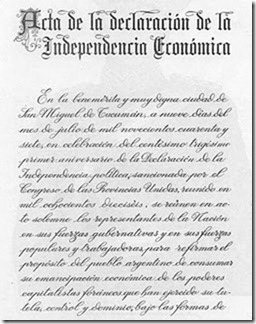 Acta de la declaración de la
Independencia Económica
En la benemérita y muy digna ciudad de
San Miguel de Tucumán, a nueve días del
mes de julio de mil novecientos cuarenta y
siete, en celebración del centésimo trigésimo
primer aniversario de la Declaración de la
Independencia política, sancionada por el
Congreso de las Provincias Unidas, reunido en
mil ochocientos dieciséis, se reúnen en acto
solemne los representantes de la Nación
en sus fuerzas gubernativas y en sus fuerzas
populares y trabajadoras, para reafirmar el
propósito del pueblo argentino de consumar
su emancipación económica de los poderes
capitalistas foráneos que han ejercido su tu-
tela, control y dominio, bajo las formas de